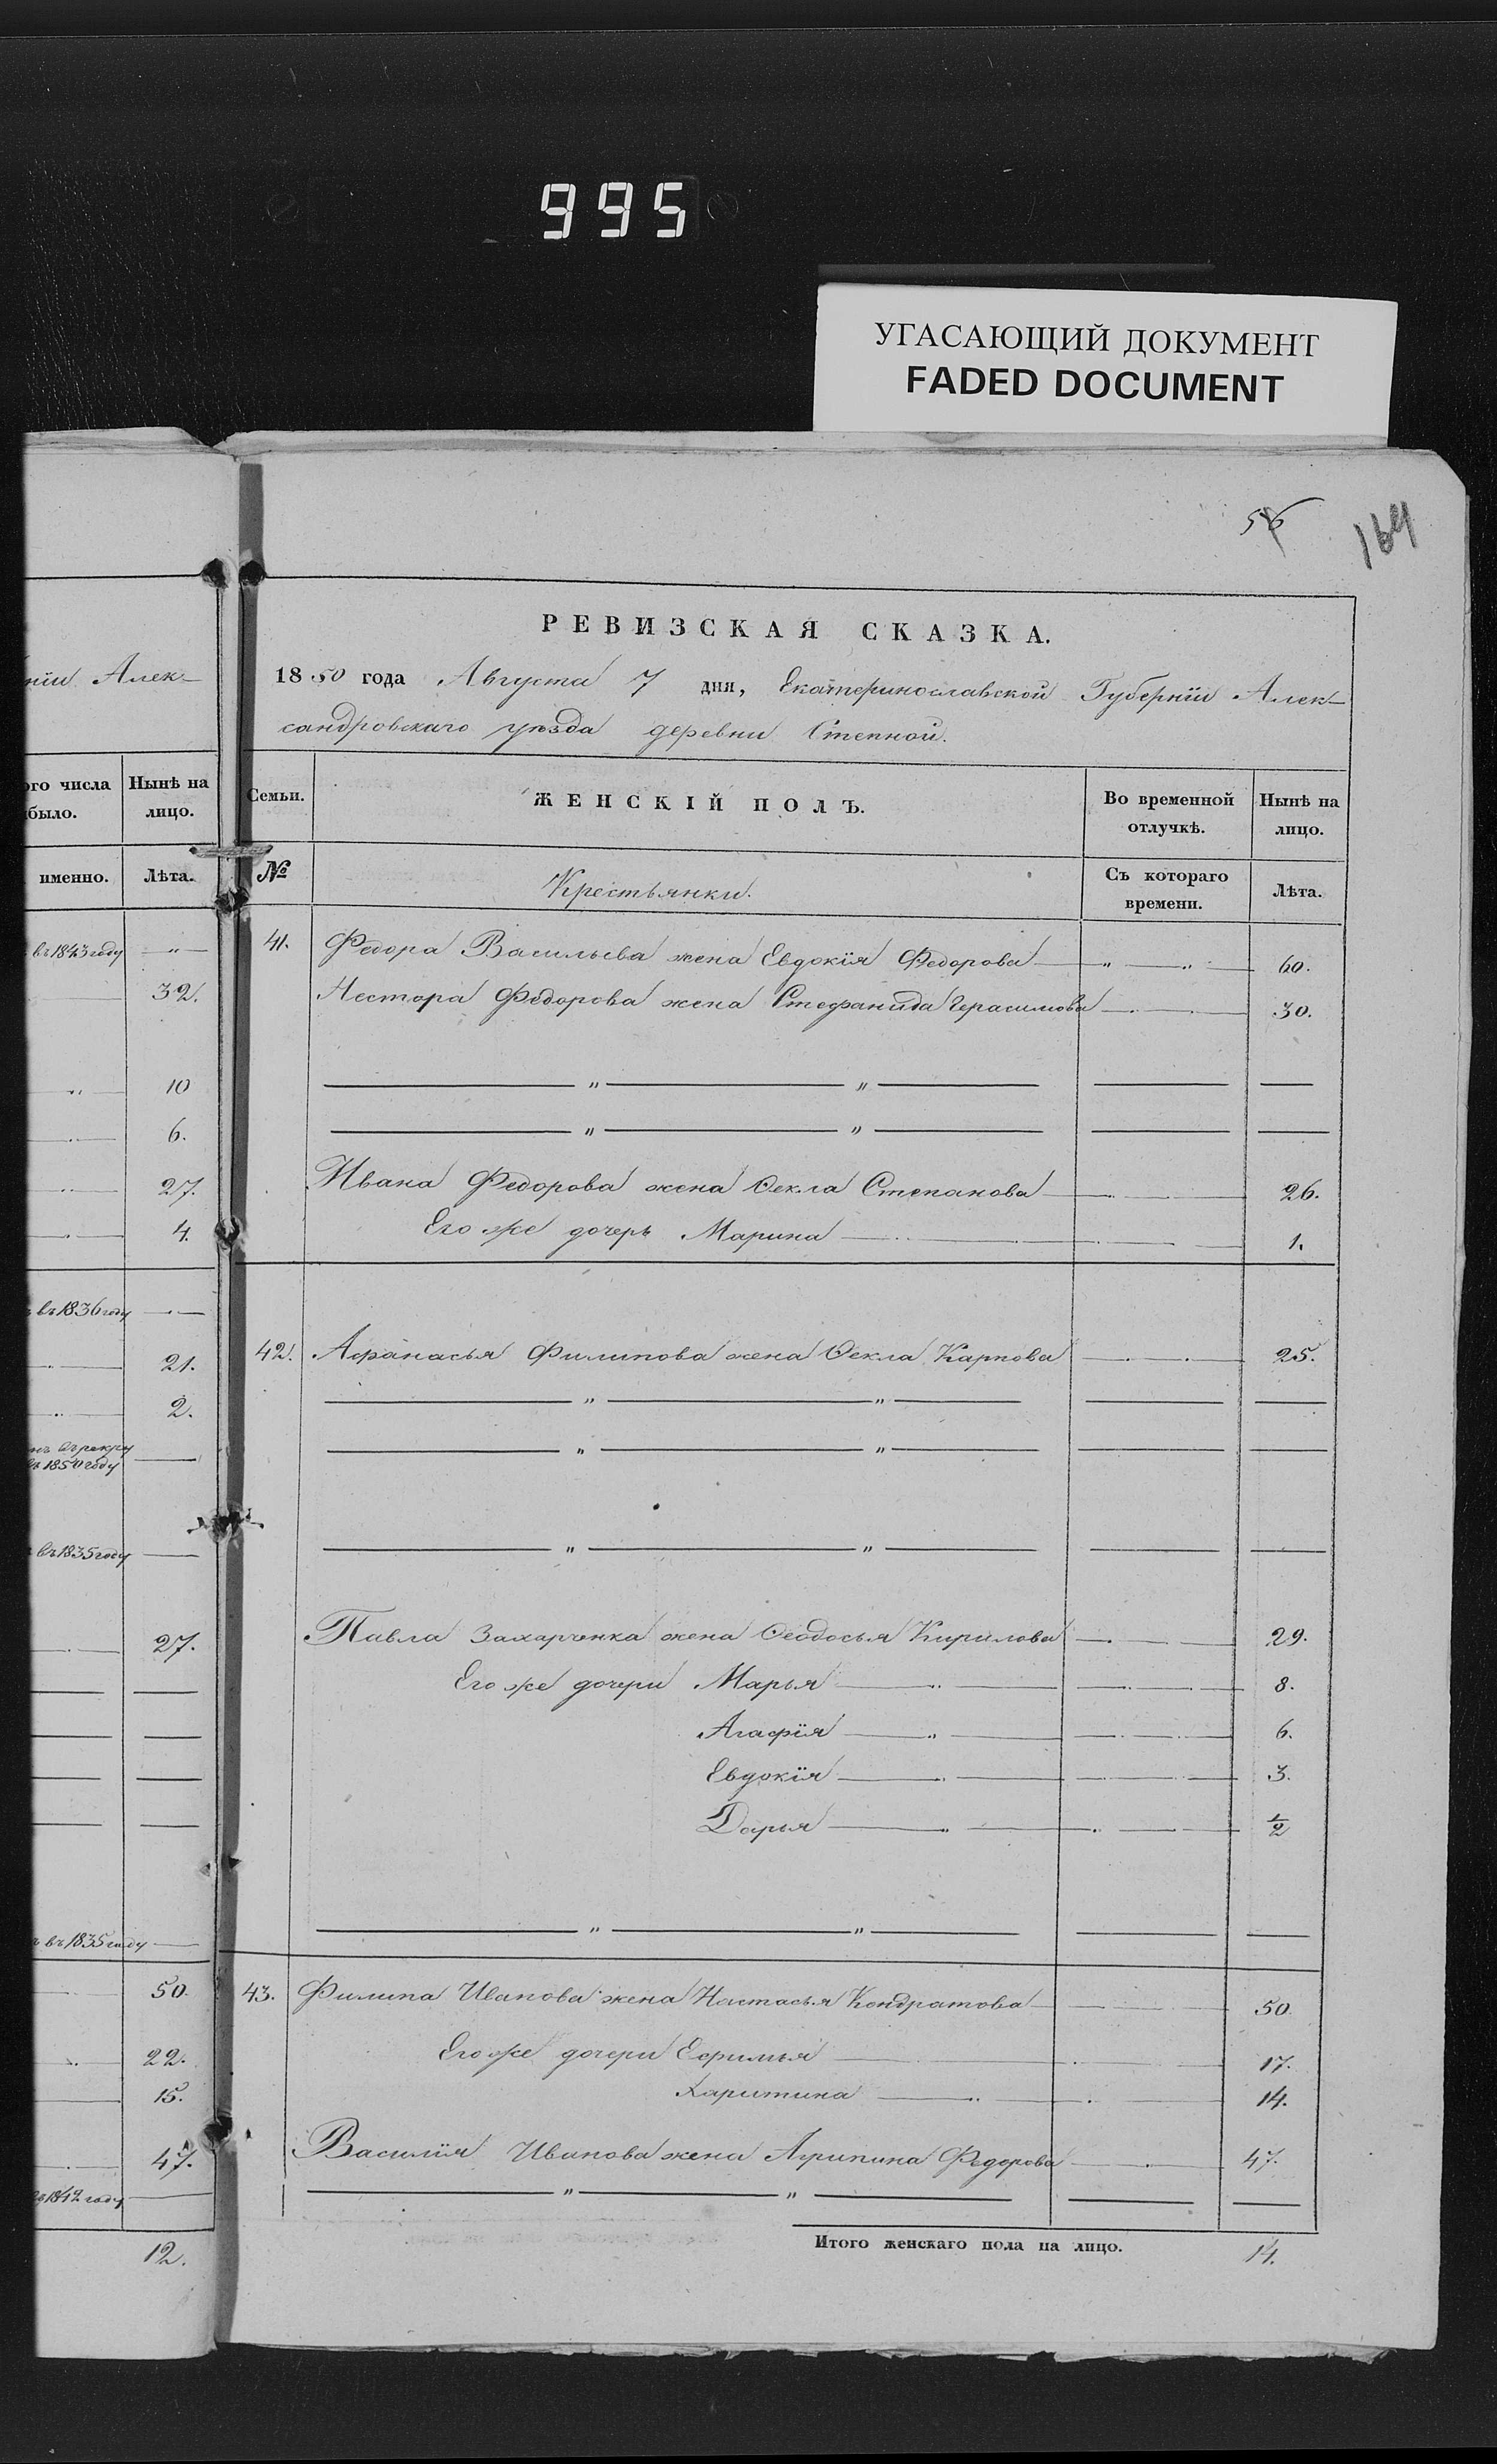 995
УГАСАЮЩИЙ ДОКУМЕНТ
FADED DOCUMENT
56
164
ніи Алек-
ого числа
было.
Нынѣ на
лицо.
именно.
Лѣта.
въ 1843 году
32.
10
6.
27.
4.
въ 1836 году
21.
2.
въ рекру
въ 1850 году
въ 1835 году
27.
въ 1835 году
50.
22.
15.
47.
въ 1842 году
12.
РЕВИЗСКАЯ СКАЗКА.
1850 года Августа 7 дня, Екатеринославской Губерніи Алек-
сандровскаго уѣзда деревни Степной.
Семьи. ЖЕНСКІЙ ПОЛЪ. Во временной отлучкѣ. Нынѣ на лицо.
№ Крестьянки. Съ котораго времени. Лѣта.
41. Федора Васильева жена Евдокія Федорова 60.
Нестора Федорова жена Стефанида Герасимова 30.
Ивана Федорова жена Ѳекла Степанова 26.
Его же дочерь Марина 1.
42. Афанасья Филипова жена Ѳекла Карпова 25.
Павла Захарченка жена Ѳеодосья Кирилова 29.
Его же дочери Марья 8.
Агафія 6.
Евдокія 3.
Дарья 1/2
43. Филипа Иванова жена Настасья Кондратова 50
Его же дочери Ефимья 17.
Харитина 14.
Василія Иванова жена Агрипина Федорова 47.
Итого женскаго пола на лицо. 14.